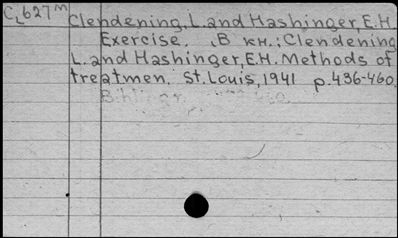 C627m
Clendening, L. and Hashinger, E.H.
Exercise. В кн.: Clendening
L. and Hashinger, E.H. Methods of
treatmen. St. Louis, 1941 p. 436-460.